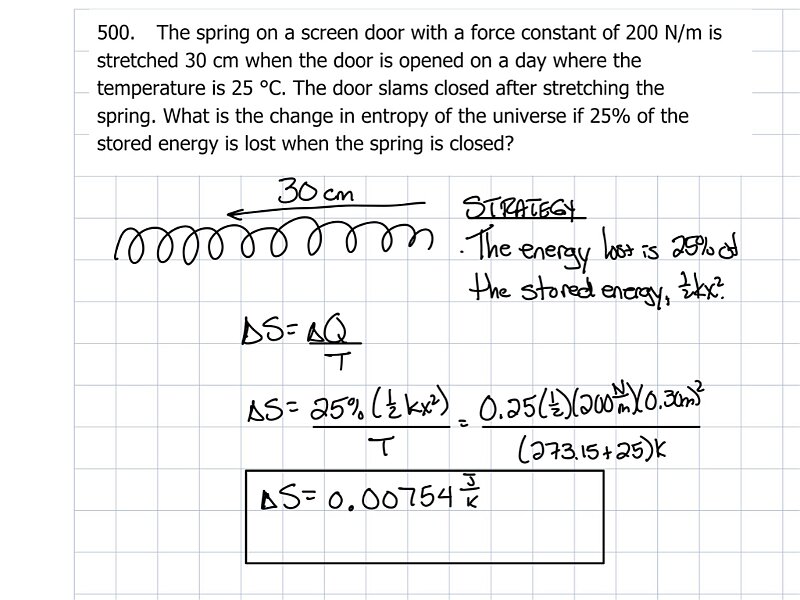 500. The spring on a screen door with a force constant of 200 N/m is
stretched 30 cm when the door is opened on a day where the
temperature is 25 °C. The door slams closed after stretching the
spring. What is the change in entropy of the universe if 25% of the
stored energy is lost when the spring is closed?
30 cm
STRATEGY
· The energy lost is 25% of
the stored energy, ½kx².
ΔS = ΔQ/T
ΔS = 25% (½ kx²)/T = 0.25(½)(200 N/m)(0.30m)²/(273.15+25)K
ΔS = 0.00754 J/K